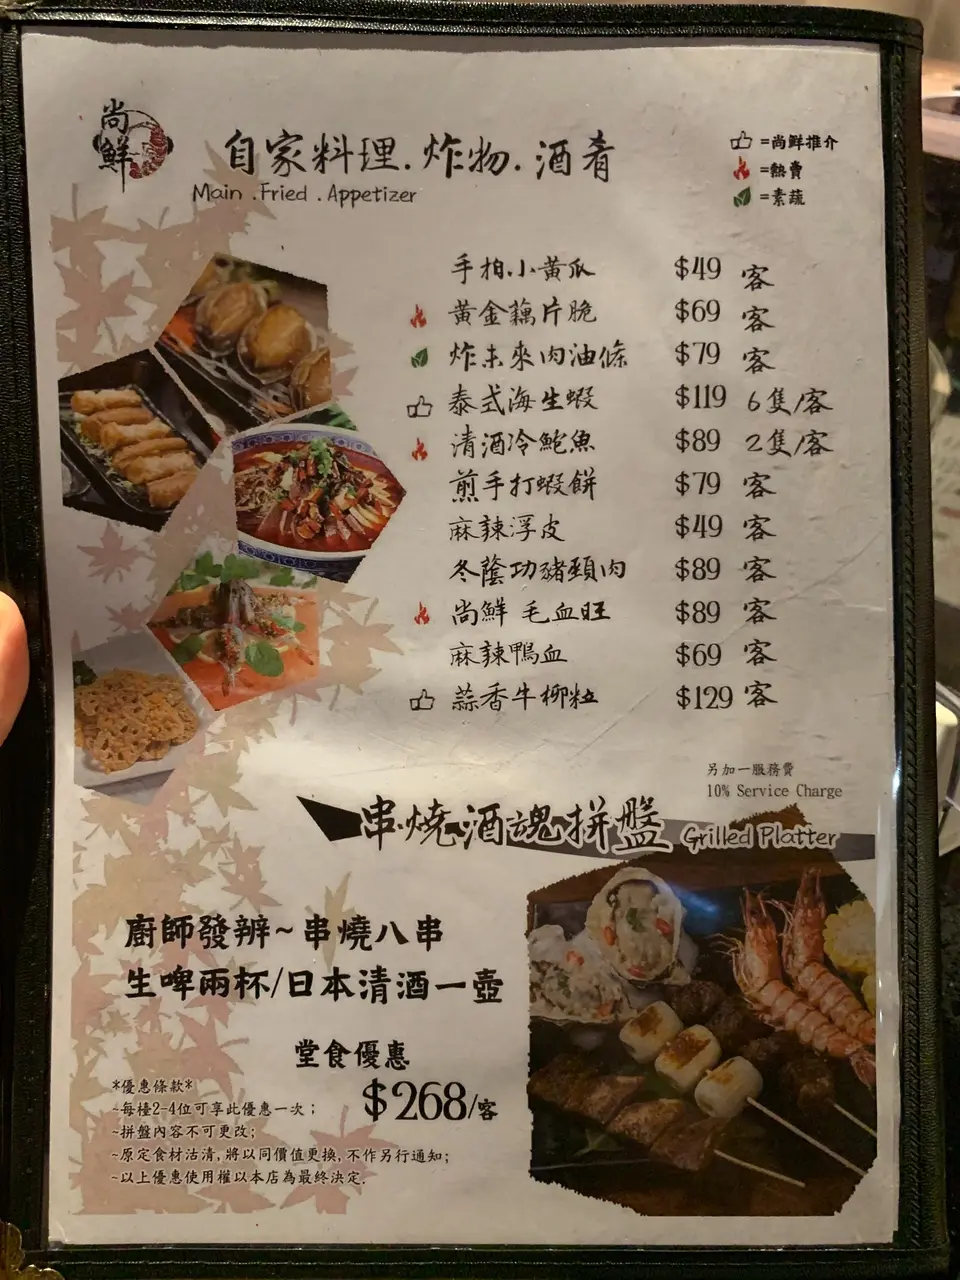 尚鮮
自家料理.炸物.酒肴
Main .Fried .Appetizer
=尚鮮推介
=熱賣
=素蔬
手拍小黃瓜 $49 客
黃金藕片脆 $69 客
炸未來肉油條 $79 客
泰式海生蝦 $119 6隻/客
清酒冷鮑魚 $89 2隻/客
煎手打蝦餅 $79 客
麻辣浮皮 $49 客
冬蔭功豬頸肉 $89 客
尚鮮 毛血旺 $89 客
麻辣鴨血 $69 客
蒜香牛柳粒 $129 客
另加一服務費
10% Service Charge
串燒酒魂拼盤 Grilled Platter
廚師發辦~串燒八串
生啤兩杯/日本清酒一壺
堂食優惠
$268/客
*優惠條款*
~每檯2-4位可享此優惠一次；
~拼盤內容不可更改;
~原定食材沽清,將以同價值更換,不作另行通知;
~以上優惠使用權以本店為最終決定.